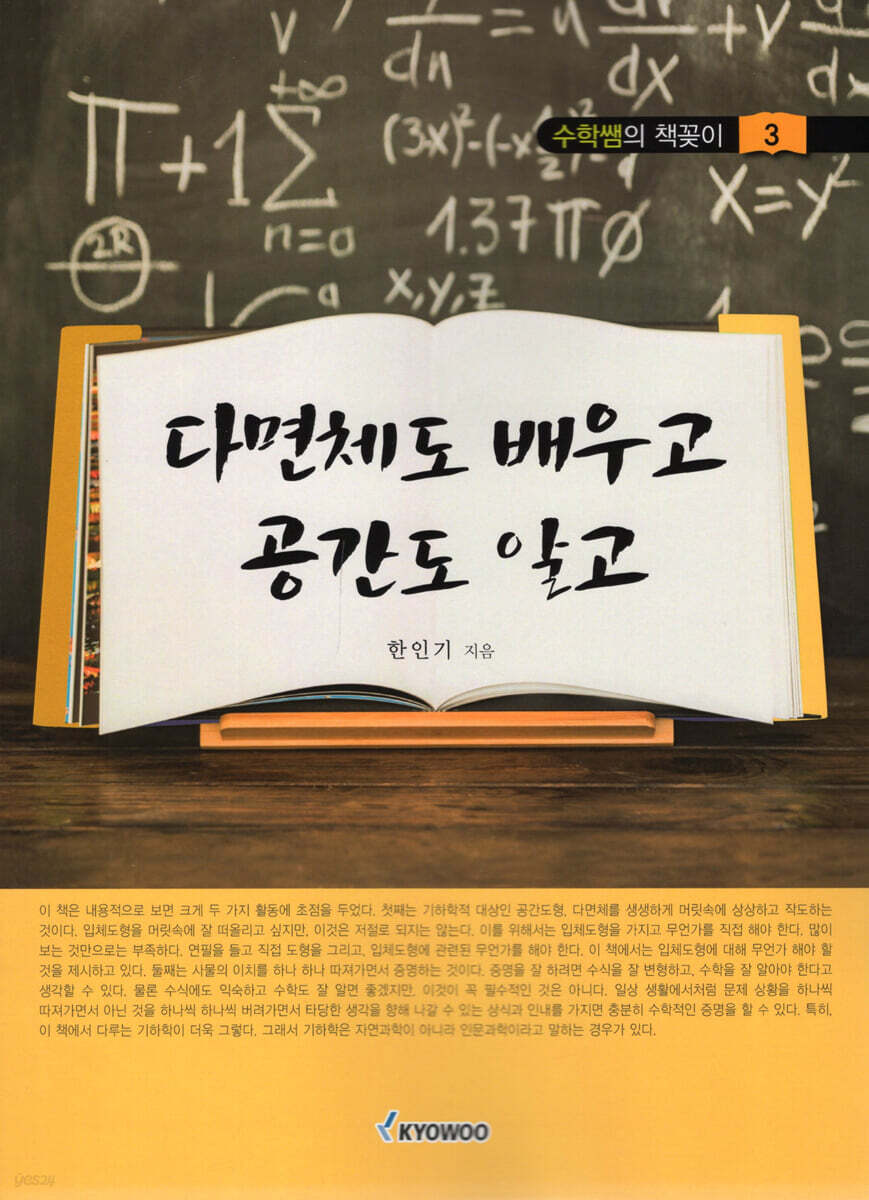 수학쌤의 책꽂이 3
π+1
+∞
Σ
n=0
2R
1.37πø
x,y,z
다면체도 배우고
공간도 알고
한인기 지음
이 책은 내용적으로 보면 크게 두 가지 활동에 초점을 두었다. 첫째는 기하학적 대상인 공간도형, 다면체를 생생하게 머릿속에 상상하고 작도하는
것이다. 입체도형을 머릿속에 잘 떠올리고 싶지만, 이것은 저절로 되지는 않는다. 이를 위해서는 입체도형을 가지고 무언가를 직접 해야 한다. 많이
보는 것만으로는 부족하다. 연필을 들고 직접 도형을 그리고, 입체도형에 관련된 무언가를 해야 한다. 이 책에서는 입체도형에 대해 무언가 해야 할
것을 제시하고 있다. 둘째는 사물의 이치를 하나 하나 따져가면서 증명하는 것이다. 증명을 잘 하려면 수식을 잘 변형하고, 수학을 잘 알아야 한다고
생각할 수 있다. 물론 수식에도 익숙하고 수학도 잘 알면 좋겠지만, 이것이 꼭 필수적인 것은 아니다. 일상 생활에서처럼 문제 상황을 하나씩
따져가면서 아닌 것을 하나씩 하나씩 버려가면서 타당한 생각을 향해 나갈 수 있는 상식과 인내를 가지면 충분히 수학적인 증명을 할 수 있다. 특히,
이 책에서 다루는 기하학이 더욱 그렇다. 그래서 기하학은 자연과학이 아니라 인문과학이라고 말하는 경우가 있다.
KYOWOO
yes24